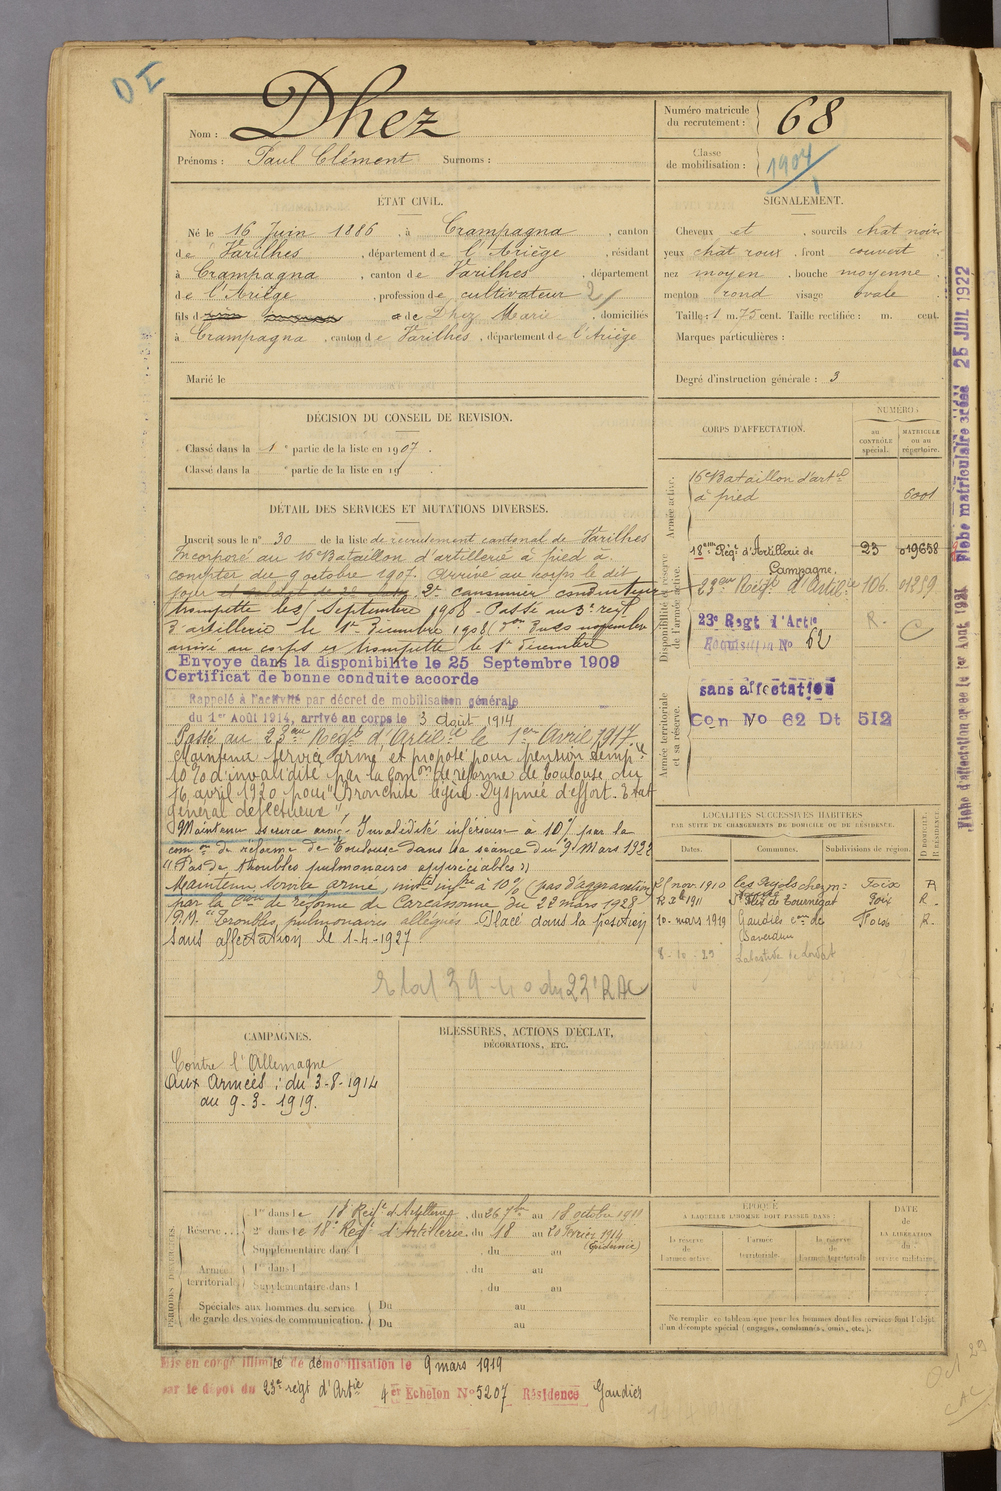 D I
Nom : Dhez
Prénoms : Paul Clément Surnoms :
Numéro matricule du recrutement : 68
Classe de mobilisation : 1904
ÉTAT CIVIL.
Né le 16 Juin 1886, à Crampagna, canton
de Varilhes, département de l'Ariège, résidant
à Crampagna, canton de Varilhes, département
de l'Ariège, profession de cultivateur 2/
fils d et de Dhez Marie, domiciliés
à Crampagna, canton de Varilhes, département de l'Ariège
Marié le
SIGNALEMENT.
Cheveux et, sourcils chât noirs
yeux chât roux, front couvert
nez moyen, bouche moyenne
menton rond visage ovale
Taille : 1 m. 75 cent. Taille rectifiée : m. cent.
Marques particulières :
Degré d'instruction générale : 3
DÉCISION DU CONSEIL DE REVISION.
Classé dans la 1e partie de la liste en 1907.
Classé dans la e partie de la liste en 19
DÉTAIL DES SERVICES ET MUTATIONS DIVERSES.
Inscrit sous le n° 30 de la liste de recrutement cantonal de Varilhes
Incorporé au 16e Bataillon d'artillerie à pied à
compter du 9 octobre 1907. Arrivé au corps le dit
jour et soldat de 2e classe. 2e canonnier conducteur
trompette le Septembre 1908 - Passé au 3e regt
d'artillerie le 1er Décembre 1908
arrivé au corps et trompette le 1er Décembre
Envoyé dans la disponibilité le 25 Septembre 1909
Certificat de bonne conduite accordé
Rappelé à l'activité par décret de mobilisation générale
du 1er Août 1914, arrivé au corps le 3 Août 1914
Passé au 23ème Régt d'Artilie le 1er Avril 1917
Maintenu service armé et proposé pour pension temp.re
10 % d'invalidité par la Comon de réforme de Toulouse du
16 avril 1920 pour "Bronchite légère. Dyspnée d'effort. Etat
général défectueux"
Maintenu service armé. Invalidité inférieure à 10% par la
com on de réforme de Toulouse dans sa séance du 9 Mars 1922
"Pas de troubles pulmonaires appréciables"
Maintenu service armé, invté infre à 10% (pas d'aggravation)
par la Con de réforme de Carcassonne du 22 mars 1928
P.V. "Troubles pulmonaires allégués. Placé dans la position
sans affectation le 1-4-1927
Etat 39-40 du 22e RAC
CORPS D'AFFECTATION.
NUMÉROS
au CONTRÔLE spécial.
MATRICULE ou au répertoire.
Armée active.
16e Bataillon d'artie
à pied 6001
Disponibilité et réserve de l'armée active.
18eme Régt d'Artillerie de Campagne. 23 019658
23eme Régt d'Artilie 106 01259
23e Regt d'Artie R. C
No 62
Armée territoriale et sa réserve.
sans affectation
Con No 62 Dt 512
LOCALITÉS SUCCESSIVES HABITÉES
PAR SUITE DE CHANGEMENTS DE DOMICILE OU DE RÉSIDENCE.
Dates. Communes. Subdivisions de région. D DOMICILE. R RÉSIDENCE.
25 nov. 1910 les Pujols Foix R
1911 Tournegat Foix R.
10 mars 1919 Gaudiès con de Saverdun Foix R.
8-10-29 Labastide de Lordat
CAMPAGNES.
Contre l'Allemagne
Aux Armées : du 3-8-1914
au 9-3-1919.
BLESSURES, ACTIONS D'ÉCLAT,
DÉCORATIONS, ETC.
PÉRIODES D'EXERCICES.
Réserve...
1re dans le 18e Régt d'Artillerie, du 26 7bre au 18 octobre 1911
2e dans le 18e Régt d'Artillerie, du 18 au 20 Février 1914
(Epidémie)
Supplémentaire dans l , du au
Armée territoriale
1re dans l , du au
Supplémentaire dans l , du au
Spéciales aux hommes du service
de garde des voies de communication.
Du au
Du au
ÉPOQUE
À LAQUELLE L'HOMME DOIT PASSER DANS :
la réserve de l'armée active.
l'armée territoriale.
la réserve de l'armée territoriale.
DATE
de
LA LIBÉRATION
du
service militaire.
Ne remplir ce tableau que pour les hommes dont les services font l'objet
d'un décompte spécial (engagés, condamnés, omis, etc.).
Mis en congé illimité de démobilisation le 9 mars 1919
par le dépôt du 23e régt d'Artie 4er Echelon No 5207 Résidence Gaudiès
Fiche matriculaire créée 25 JUIL 1922
Oct 29
CAC